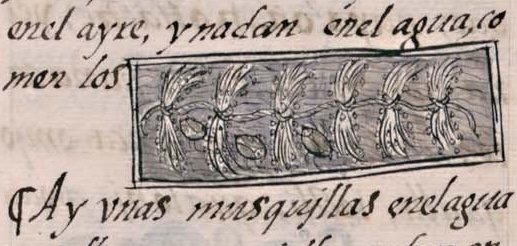 enel ayre, ynadan enel agua, co
men los
¶ Ay vnas musqujllas enel agua